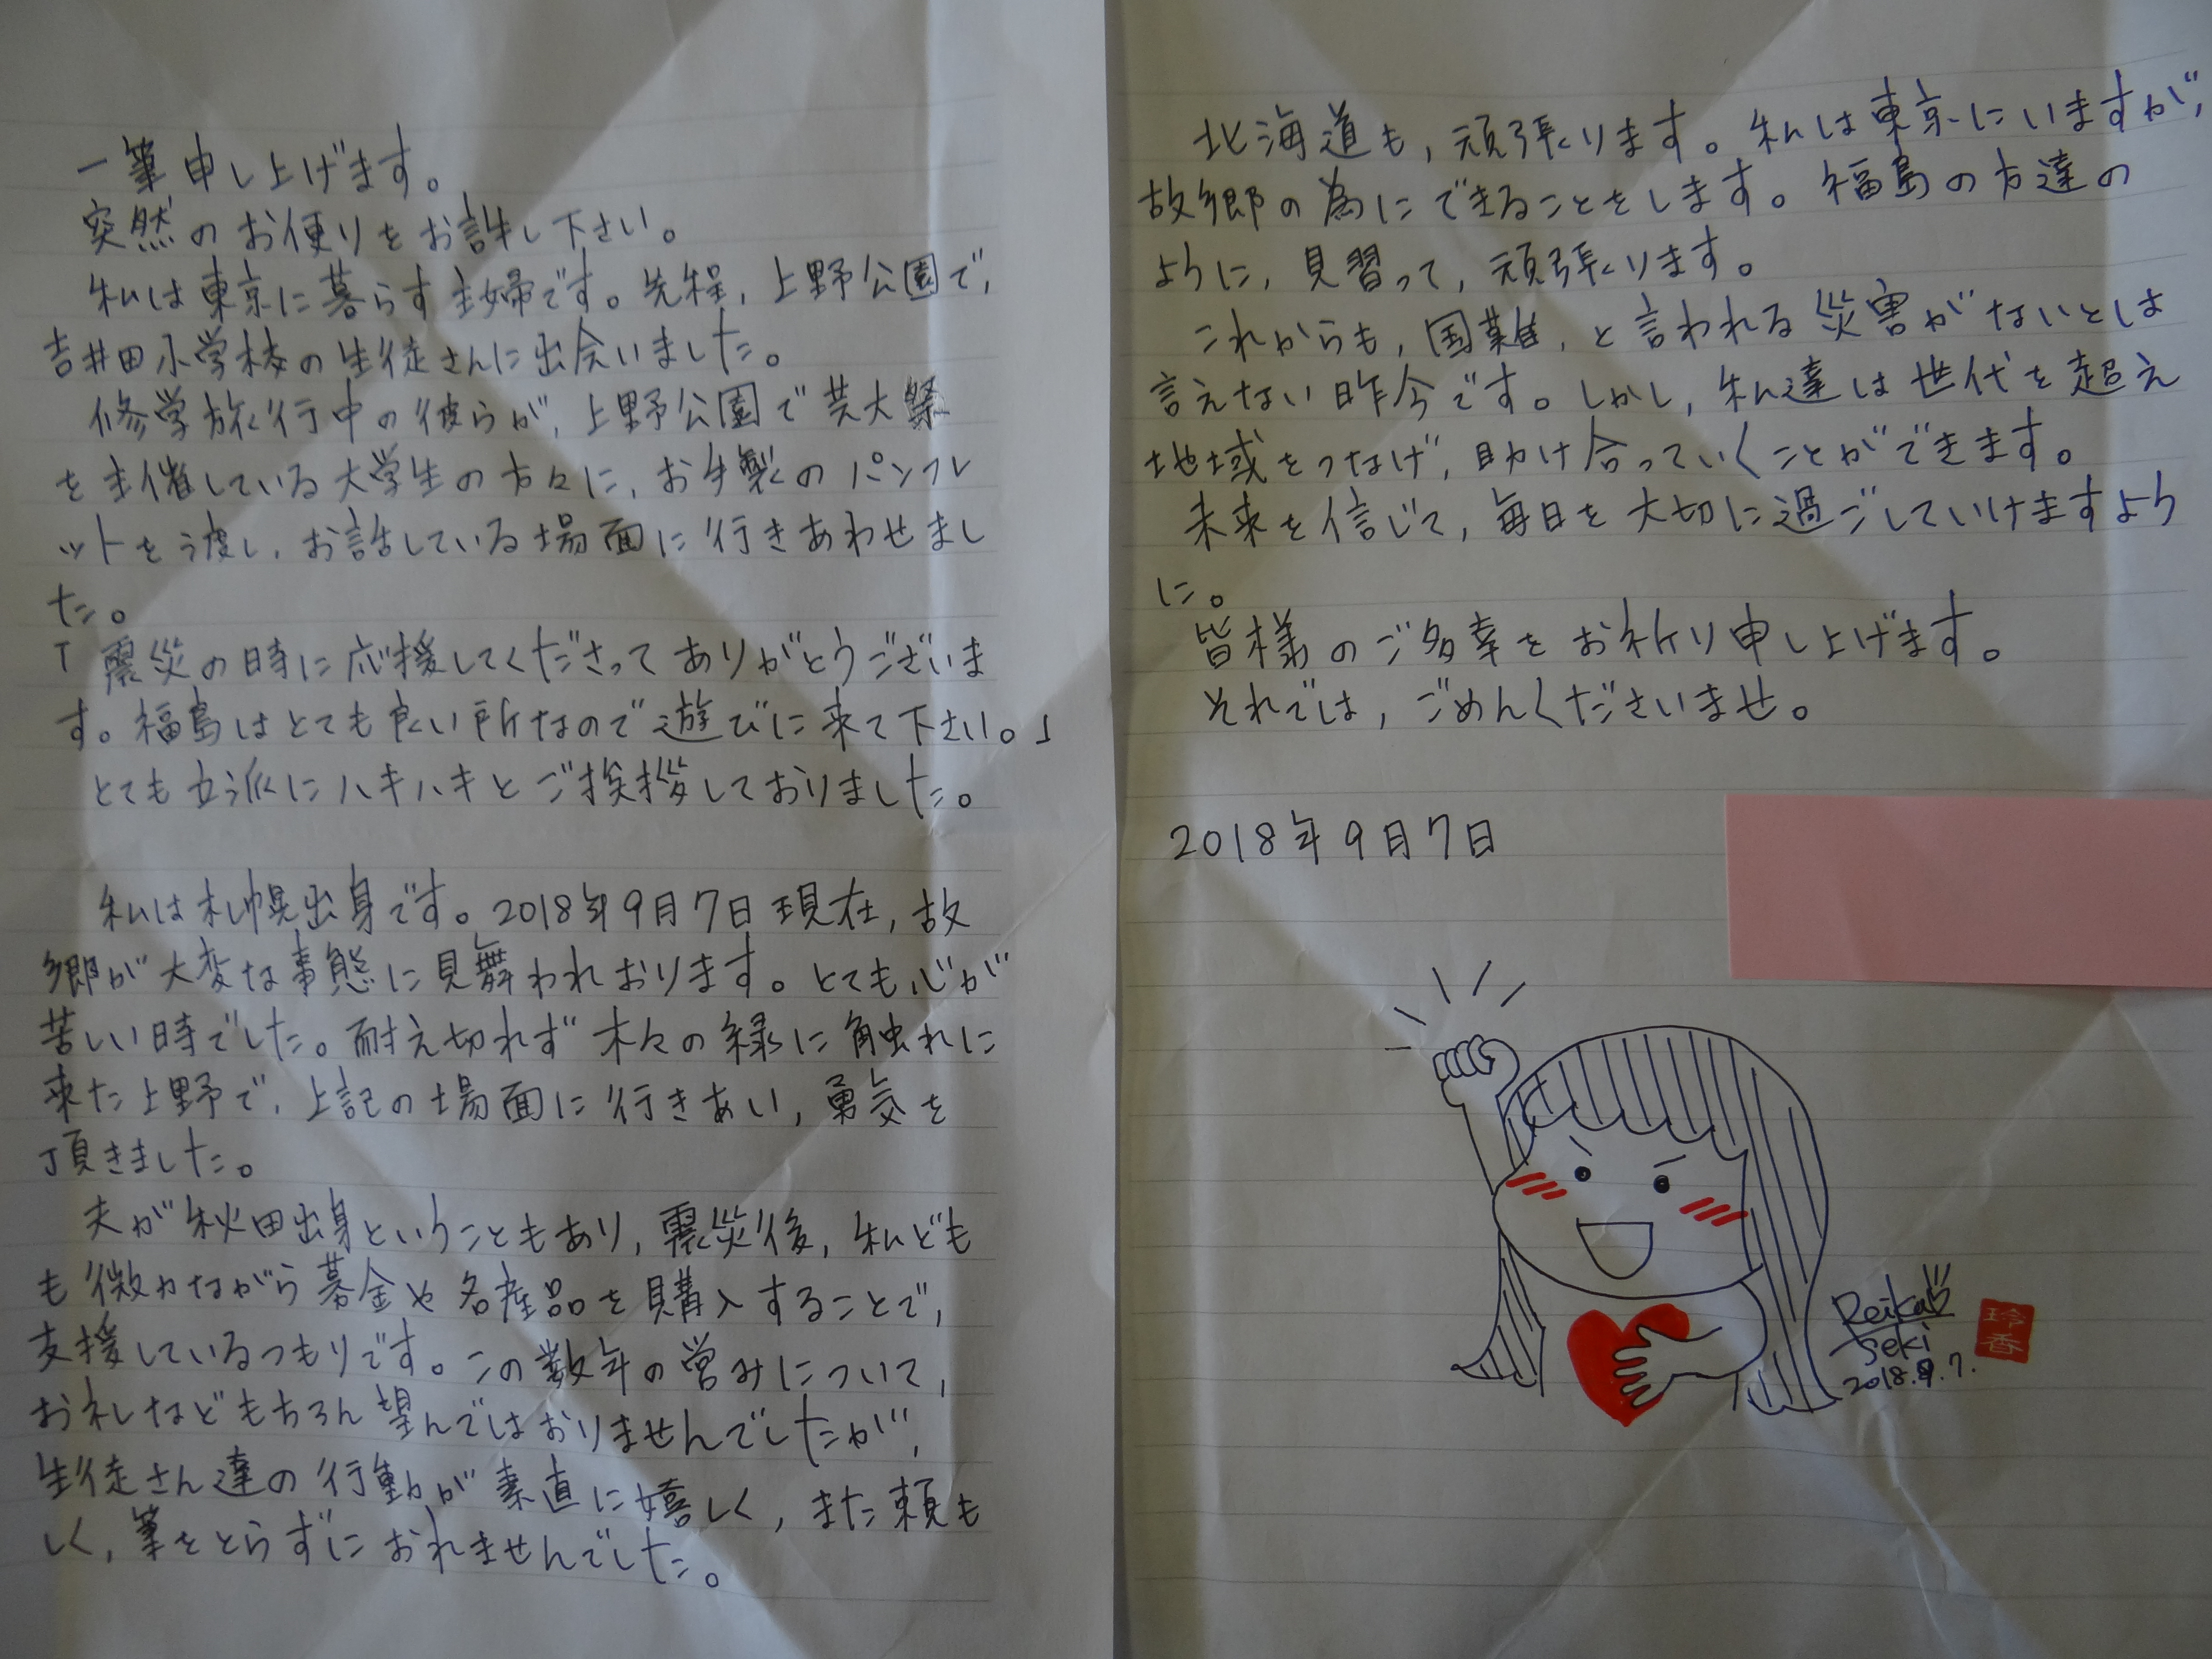 一筆申し上げます。
突然のお便りをお許し下さい。
私は東京に暮らす主婦です。先程、上野公園で、
吉井田小学校の生徒さんに出会いました。
修学旅行中の彼らが、上野公園で芸大祭
を主催している大学生の方々に、お手製のパンフレ
ットを渡し、お話している場面に行きあわせまし
た。
「震災の時に応援してくださってありがとうございま
す。福島はとても良い所なので遊びに来て下さい。」
とても立派にハキハキとご挨拶しておりました。
私は札幌出身です。2018年9月7日現在、故
郷が大変な事態に見舞われおります。とても心が
苦しい時でした。耐え切れず木々の緑に触れに
来た上野で、上記の場面に行きあい、勇気を
頂きました。
夫が秋田出身ということもあり、震災後、私ども
も微力ながら募金や名産品を購入することで、
支援しているつもりです。この数年の営みについて、
お礼などもちろん望んではおりませんでしたが、
生徒さん達の行動が素直に嬉しく、また頼も
しく、筆をとらずにおれませんでした。
北海道も、頑張ります。私は東京にいますが、
故郷の為にできることをします。福島の方達の
ように、見習って、頑張ります。
これからも、国難、と言われる災害がないとは
言えない昨今です。しかし、私達は世代を超え
地域をつなげ、助け合っていくことができます。
未来を信じて、毎日を大切に過ごしていけますよう
に。
皆様のご多幸をお祈り申し上げます。
それでは、ごめんくださいませ。
2018年9月7日
Reika
Seki
2018.9.7.
玲香